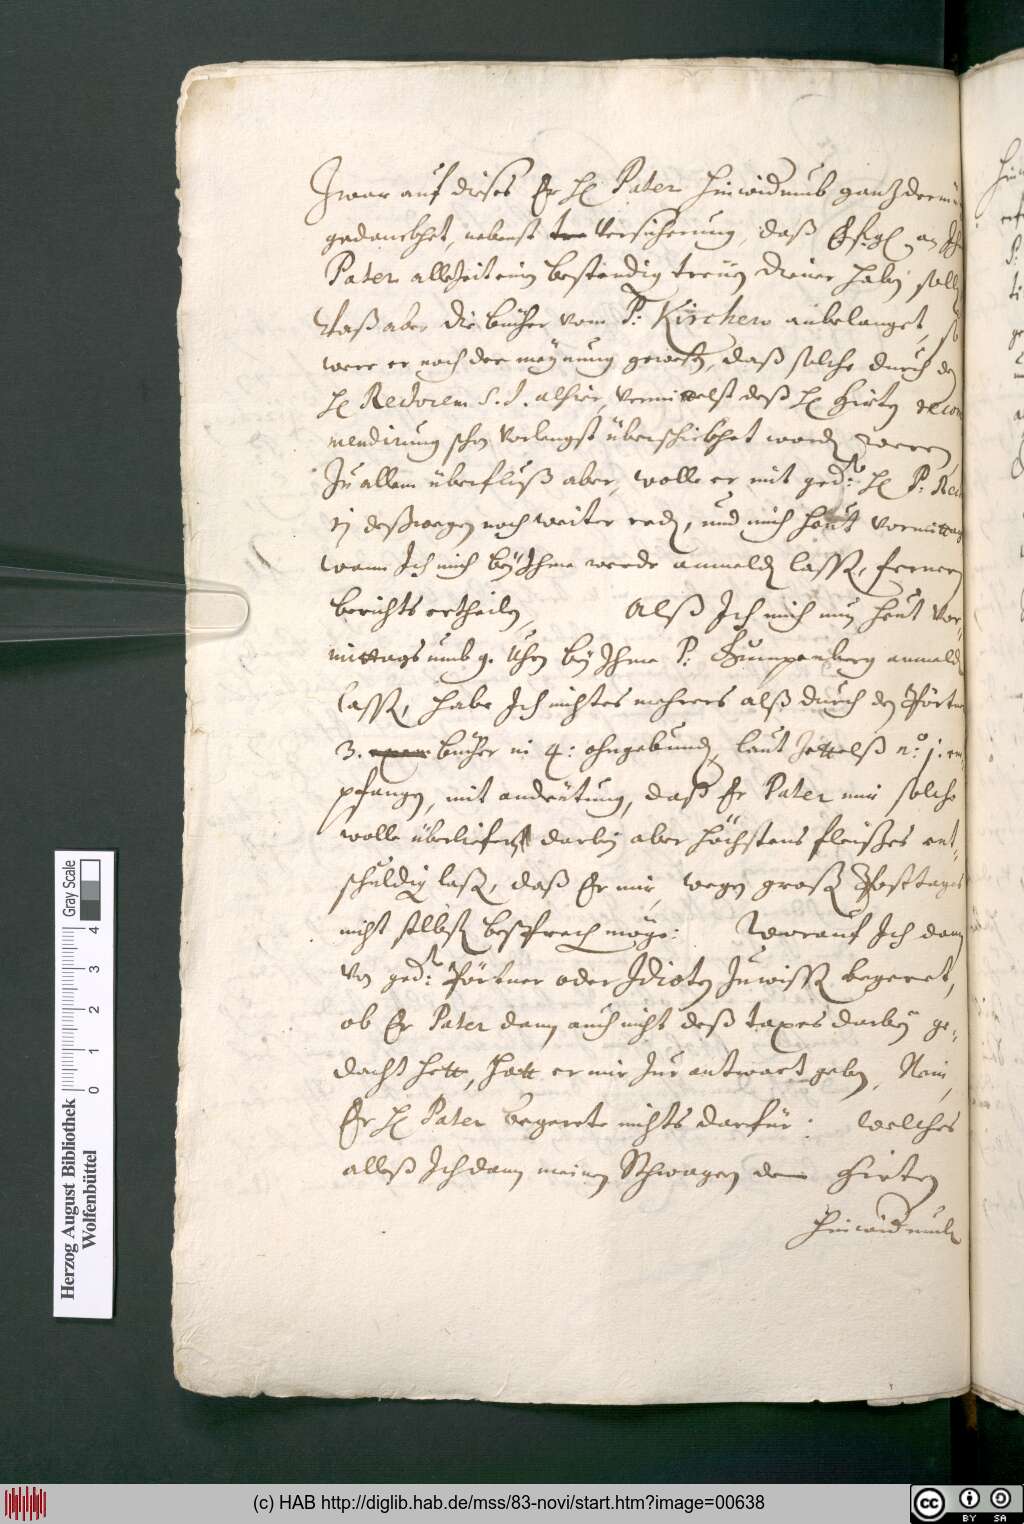 Zwar auf dieses Er H. Pater hinwidrumb ganz
gedanckhet, nebenst Versicherung, daß an
Pater allezeit einen bestendig treuen diener haben
Daß aber die bücher vom P: Kircher anbelanget, so
were er noch der meynung gewesen, daß solche durch den
H. Rectorem S. J. alhier, vermittelst deß H. Hirten recom
mendirung schon vorlengst überschickhet worden weren,
Zu allem überfluß aber, wolle er mit ged: H. P: Rec
deßwegen noch weiter reden, und mich heut vormittag
wann Ich mich bey Ihme werde anmelden lassen, fernern
berichts ertheilen, Alß Ich mich nun heut vor-
mittags umb 9. Uhren bey Ihme P: Gumpenberg
lassen, habe Ich nichtes mehrers alß durch den Pörtner
3. bücher in 4: ohngebunden, laut Zettelß No. 1. em
pfangen, mit andeütung, daß Er Pater mir solche
wolle überliefern, darbey aber höchstens fleißes ent-
schuldig laßen, daß Er mir, wegen großen Posttages
nicht selbst besprech möge: Worauf Ich dann
von ged: Pörtner oder Idioten zu wissen begeret,
ob Er Pater dann auch nicht deß taxes darbey ge-
dacht hett, hatt er mir zur antwort geben, Nein,
Er H. Pater begerete nichts darfür: welches
alleß Ich dann meinen Schwagern dem Hirten
hinwidrumb
Herzog August Bibliothek
Wolfenbüttel
0 1 2 3 4
Gray Scale
(c) HAB http://diglib.hab.de/mss/83-novi/start.htm?image=00638
cc BY SA